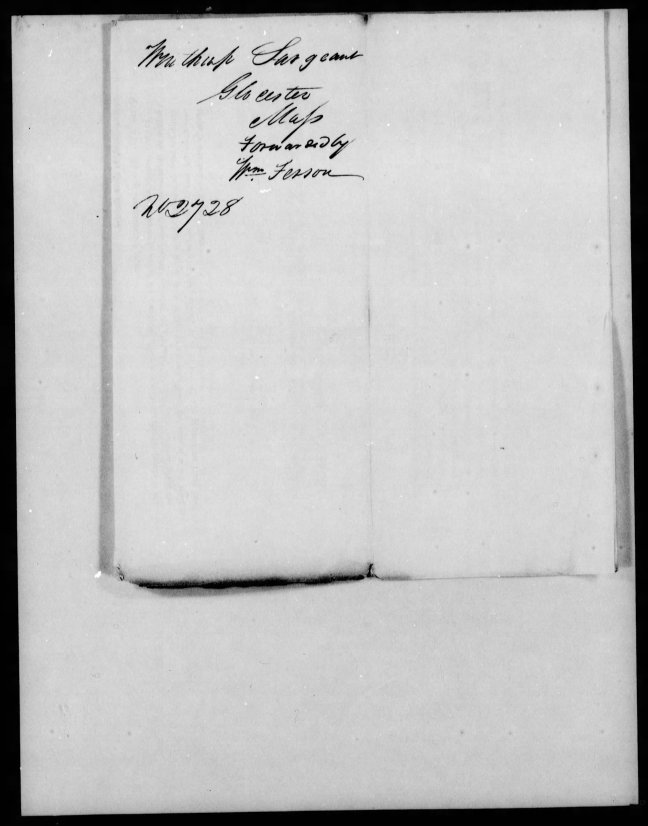 Winthrop Sargeant
Glocester
Mass
Forwarded by
Wm Fesson
No 2728